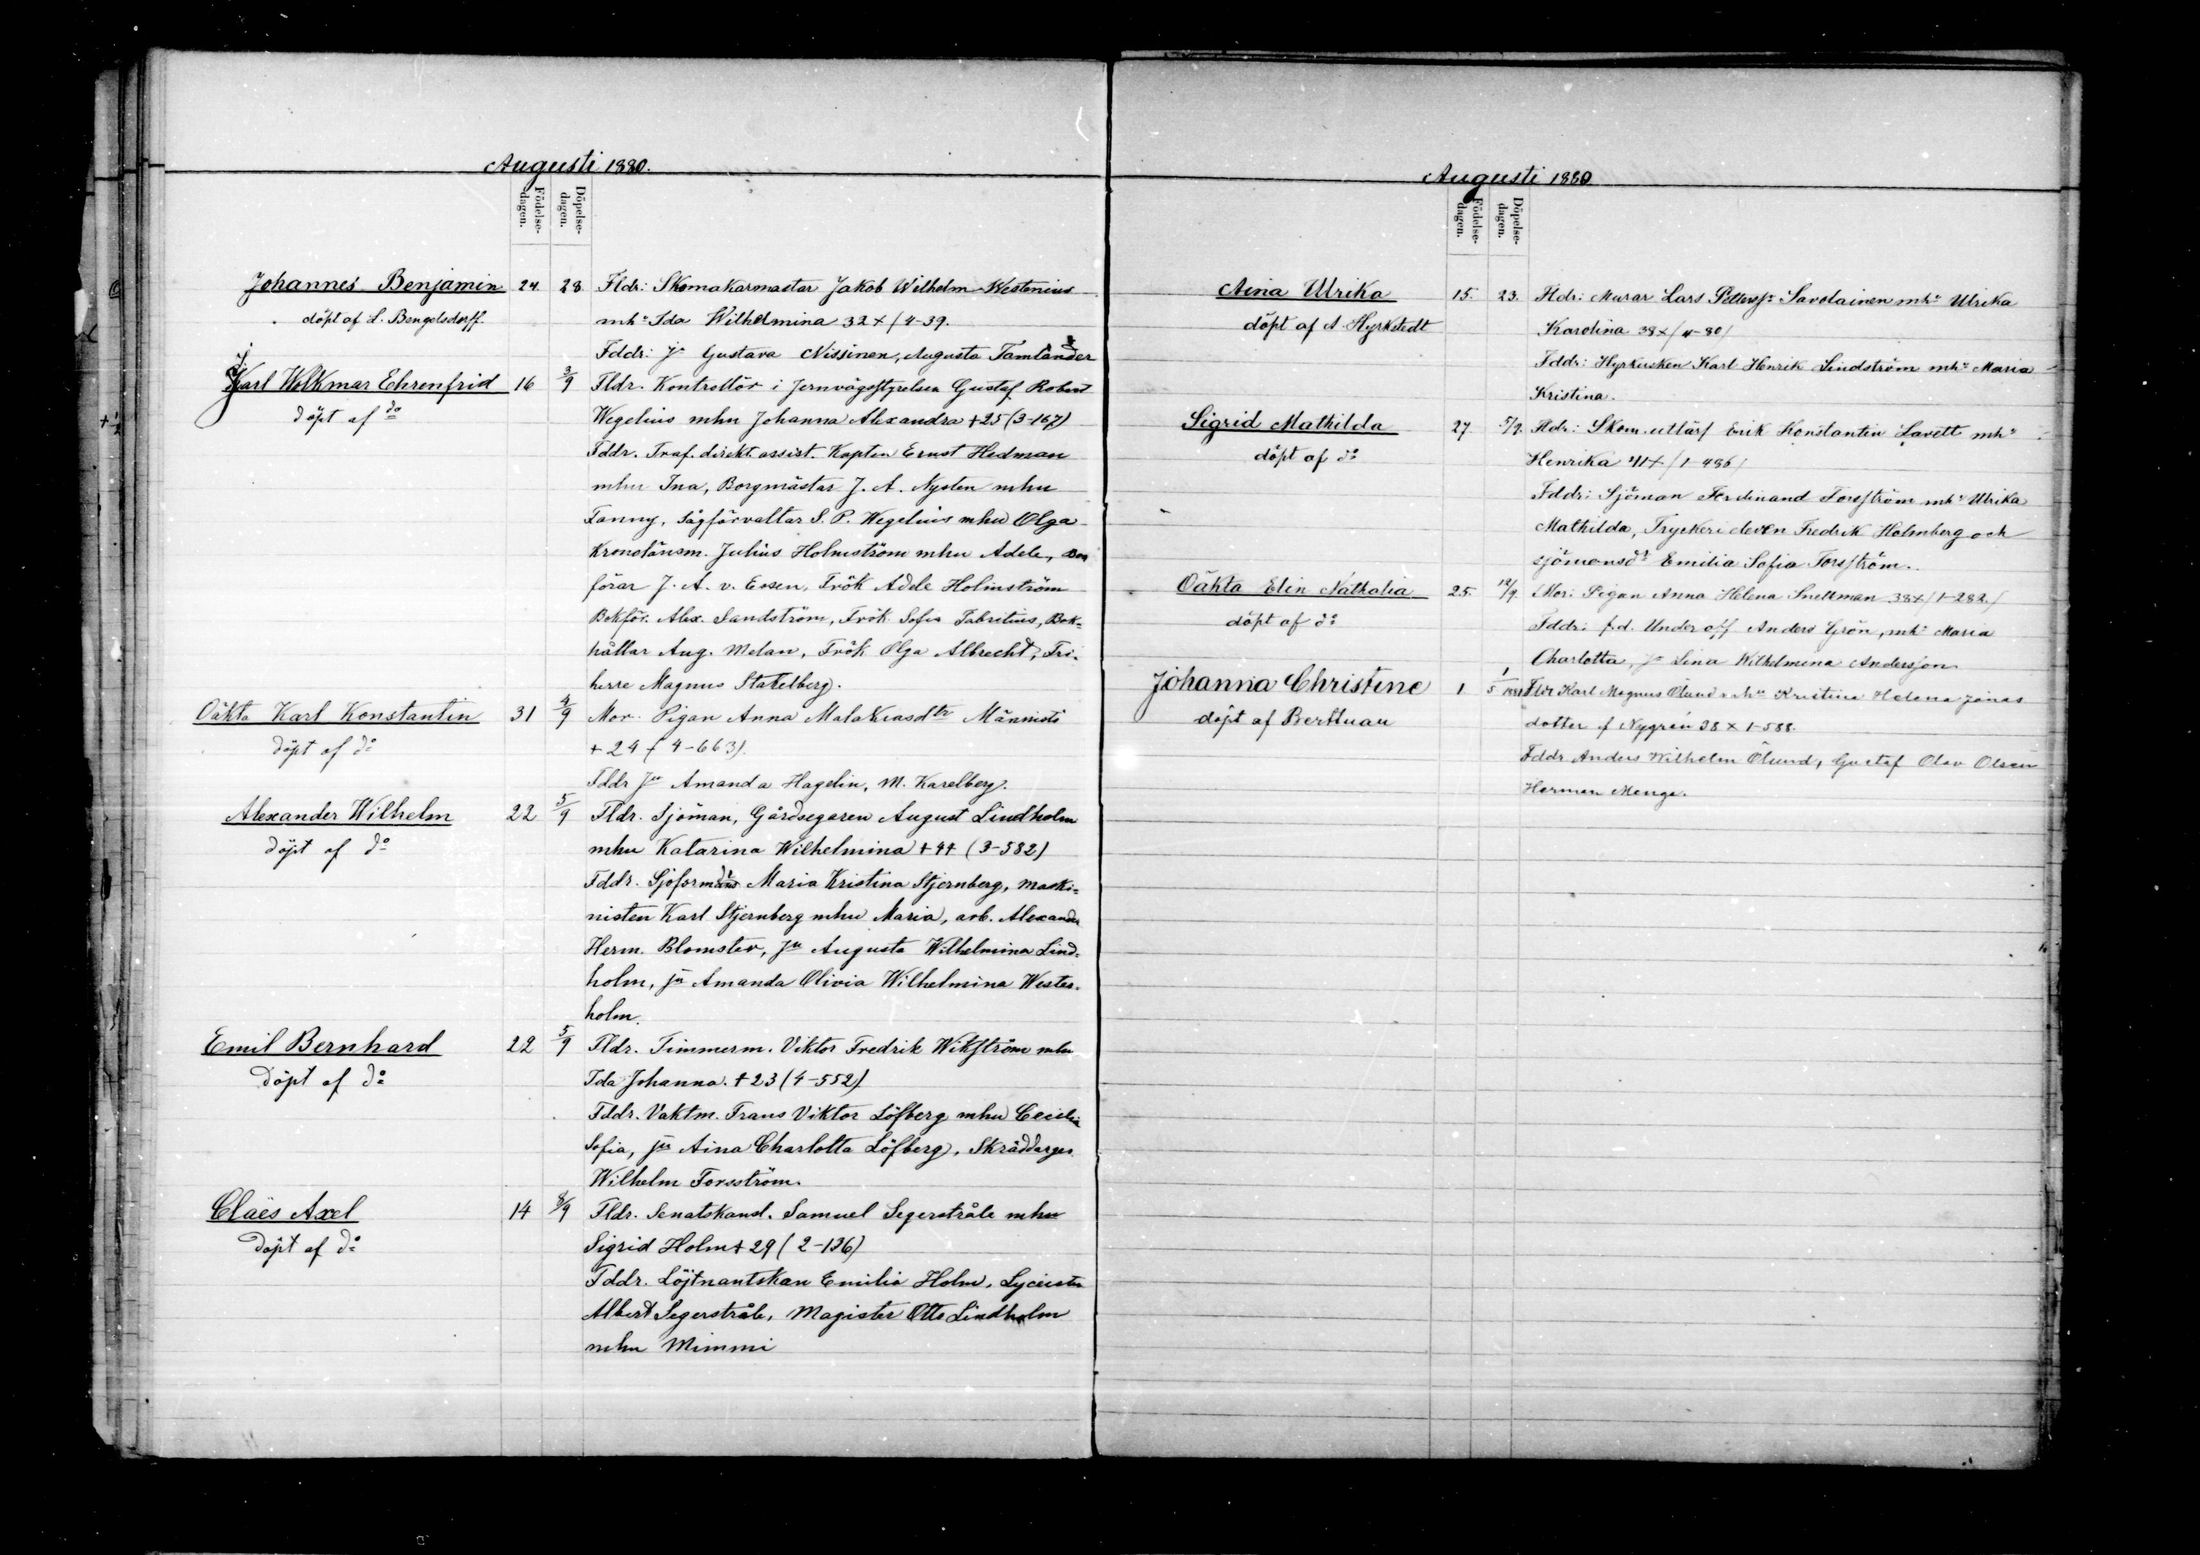 Augusti 1880.
Födelse-
dagen.
Döpelse-
dagen.
Johannes Benjamin 24. 28. Fldr: Skomakarmastar Jakob Wilhelm Westenius
döpt af L. Bengelsdorff. mhu Ida Wilhelmina 32 + (4-39.
Fddr: Ju Gustava Nissinen, Augusta Tamlander
Karl Wolkmar Ehrenfrid 16 3/9 Fldr. Kontrollör i Jernvägsstyrelsen Gustaf Robert
döpt af do Wegelius mhu Johanna Alexandra +25 (3-167)
Fddr. Traf. direkt. assist. Kapten Ernst Hedman
mhu Ina, Borgmästar J. A. Nysten mhu
Fanny, Sågförvaltar S. P. Wegelius mhu Olga
Kronolänsm. Julius Holmström mhu Adele,
förar J. A. v. Essen, Frök Adele Holmström
Bokför. Alex. Sandström, Frök. Sofie Fabritius, Bok-
hållar Aug. Melan, Frök Olga Albrecht, Fri-
herre Magnus Stakelberg.
Oäkta Karl Konstantin 31 4/9 Mor. Pigan Anna Malakiasdtr Männistö
döpt af do + 24 (4-663).
Fddr Ju Amanda Hagelin, M. Karelberg.
Alexander Wilhelm 22 5/9 Fldr. Sjöman, Gårdsegaren August Lindholm
döpt af do mhu Katarina Wilhelmina + 44 (3-382)
Fddr. Sjöform Maria Kristina Stjernberg, maski-
nisten Karl Stjernberg mhu Maria, arb. Alexander
Herm. Blomster, Ju Augusta Wilhelmina Lind-
holm, Ju Amanda Olivia Wilhelmina Wester-
holm.
Emil Bernhard 22 5/9 Fldr. Timmerm. Viktor Fredrik Wikström mhu
döpt af do Ida Johanna. + 23 (4-552)
Fddr. Vaktm. Frans Viktor Löfberg mhu Cecilia
Sofia, Ju Aina Charlotta Löfberg, Skräddarges
Wilhelm Forsström.
Claës Axel 14 8/9 Fldr. Senatskansl. Samuel Segerstråle mhu
döpt af do Sigrid Holm + 29 (2-136)
Fddr. Löjtnantskan Emilia Holm, Lyceisten
Albert Segerstråle, Magister Otto Lindholm
mhu Mimmi
Augusti 1880
Födelse-
dagen.
Döpelse-
dagen.
Aina Ulrika 15. 23. Fldr: Murar Lars Pettersson Savolainen mhu Ulrika
döpt af A. Hyrkstedt Karolina 38 + (4-80)
Fddr: Hyrkusken Karl Henrik Lindström mhu Maria
Kristina.
Sigrid Mathilda 27 5/9. Fldr: Skom. utlärf Erik Konstantin Lavett mhu
döpt af do Henrika 41 + (1-486)
Fddr: Sjöman Ferdinand Forsström mhu Ulrika
Mathilda, Tryckeri eleven Fredrik Holmberg och
sjömansdr Emilia Sofia Forsström.
Oäkta Elin Nathalia 25. 12/9. Mor: Pigan Anna Helena Snellman 38 + (1-282.)
döpt af do Fddr: f.d. Under off Anders Grön, mhu Maria
Charlotta, Ju Lina Wilhelmina Andersson.
Johanna Christine 1 1/5 1881 Fldr Karl Magnus Ölund mhu Kristina Helena Jonas
döpt af dotter f Nygrén 38 x 1-588.
Fddr Anders Wilhelm Ölund, Gustaf Olav Olsen
Herman Menge.